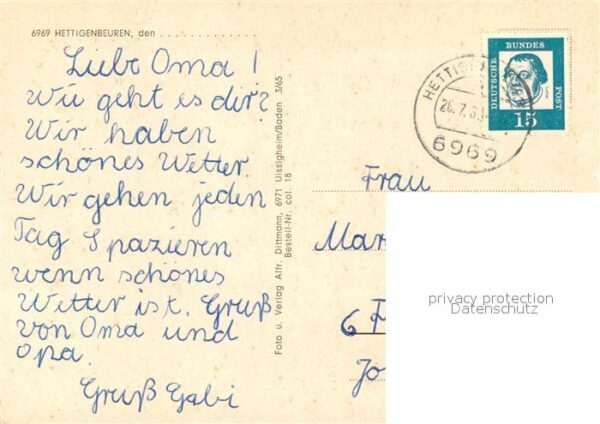 6969 HETTIGENBEUREN, den . . . . . . . . . . . . . .
Liebe Oma !
Wie geht es dir?
Wir haben
schönes Wetter.
Wir gehen jeden
Tag Spazieren
wenn schönes
Wetter ist. Gruß
von Oma und
Opa.
Gruß Gabi
Foto u. Verlag Alfr. Dittmann, 6971 Uissigheim/Baden 3/65
Bestell-Nr. col. 18
DEUTSCHE
BUNDES
POST
15
6969
Frau
Mar
6
Jo
privacy protection
Datenschutz